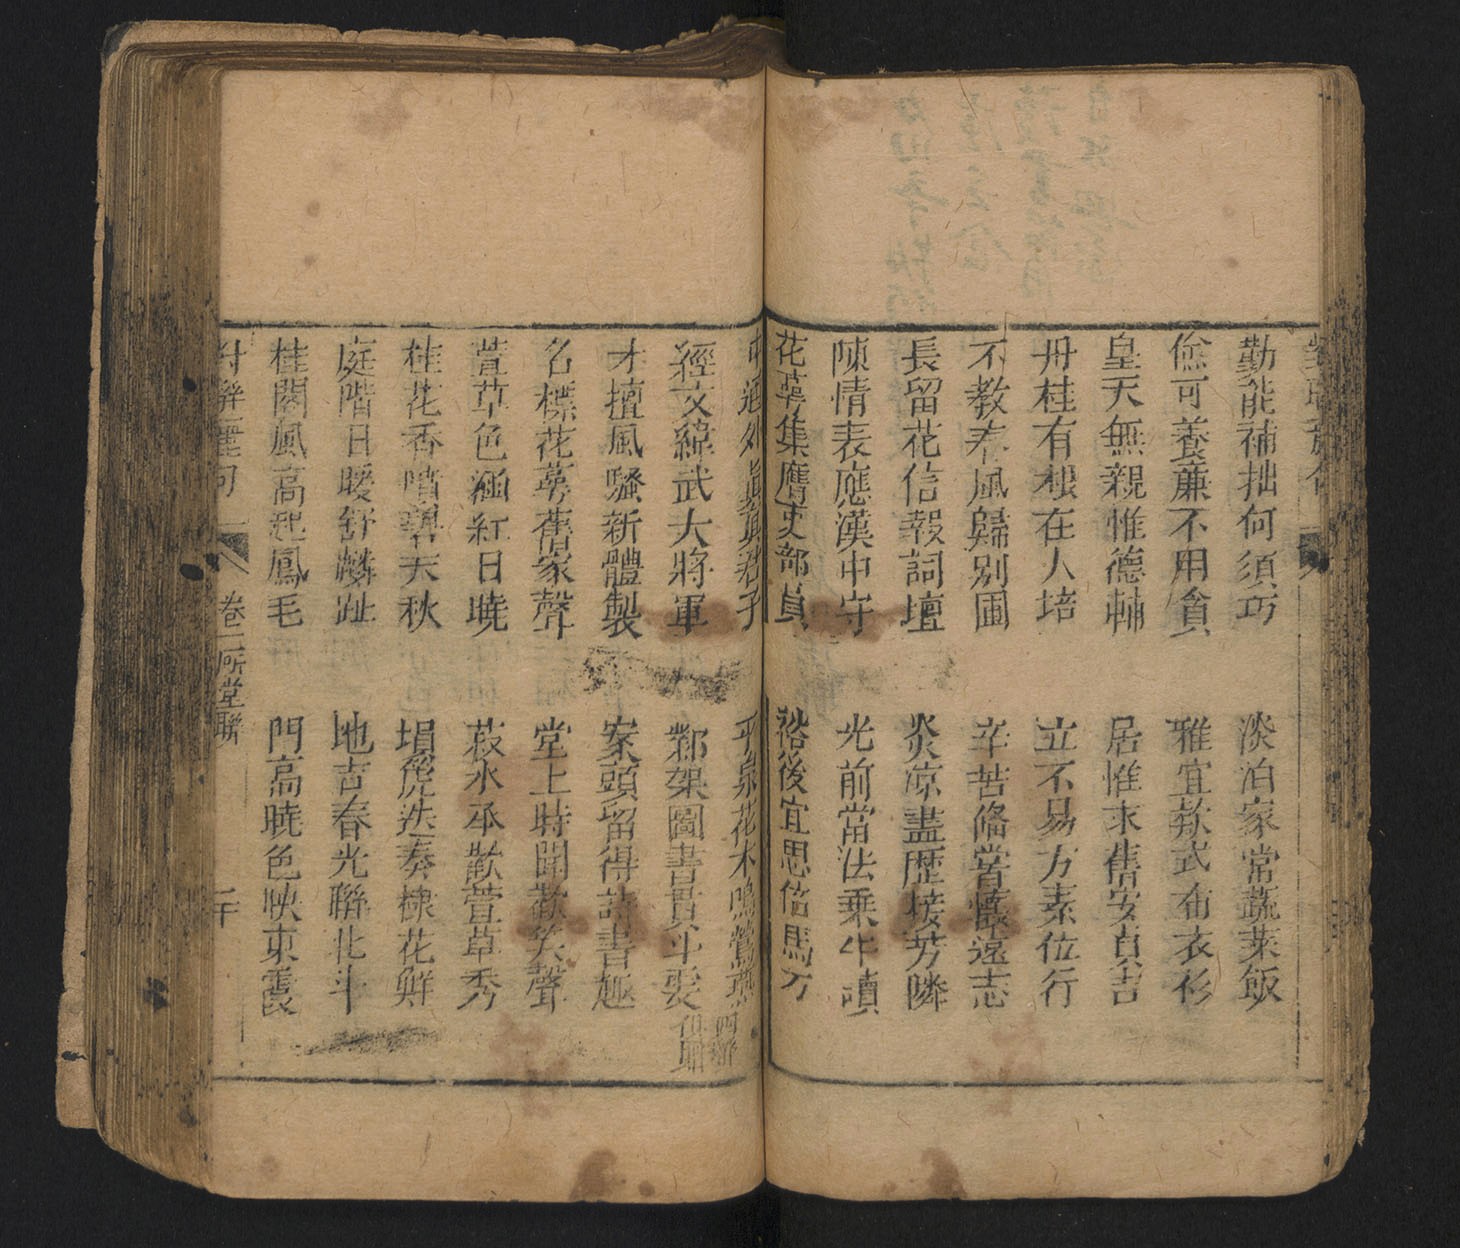 勤能補拙何須巧
淡泊家常蔬菜飯
儉可養廉不用貪
雅宜欵式布衣衫
皇天無親惟德輔
居惟求舊安貞吉
丹桂有根在人培
立不易方素位行
不教春風歸別圃
辛苦偹嘗懷遠志
長留花信報詞壇
炎凉盡歷接芳隣
陳情表應漢中守
光前當法乗牛讀
花萼集膺吏部員
裕後宜思倍馬方
平泉花木鳴鶯燕
經文緯武大將軍
鄴架圖書貫斗
才擅風騷新體製
案頭留得詩書趣
名標花萼舊家聲
堂上時聞歡笑聲
萱草色涵紅日曉
菽水承歡萱草秀
桂花香噴碧天秋
塤箎迭奏棣花鮮
庭階日暖舒麟趾
地吉春光聯北斗
桂閣風高起鳳毛
門高曉色映東震
卷二 所堂聯
二十